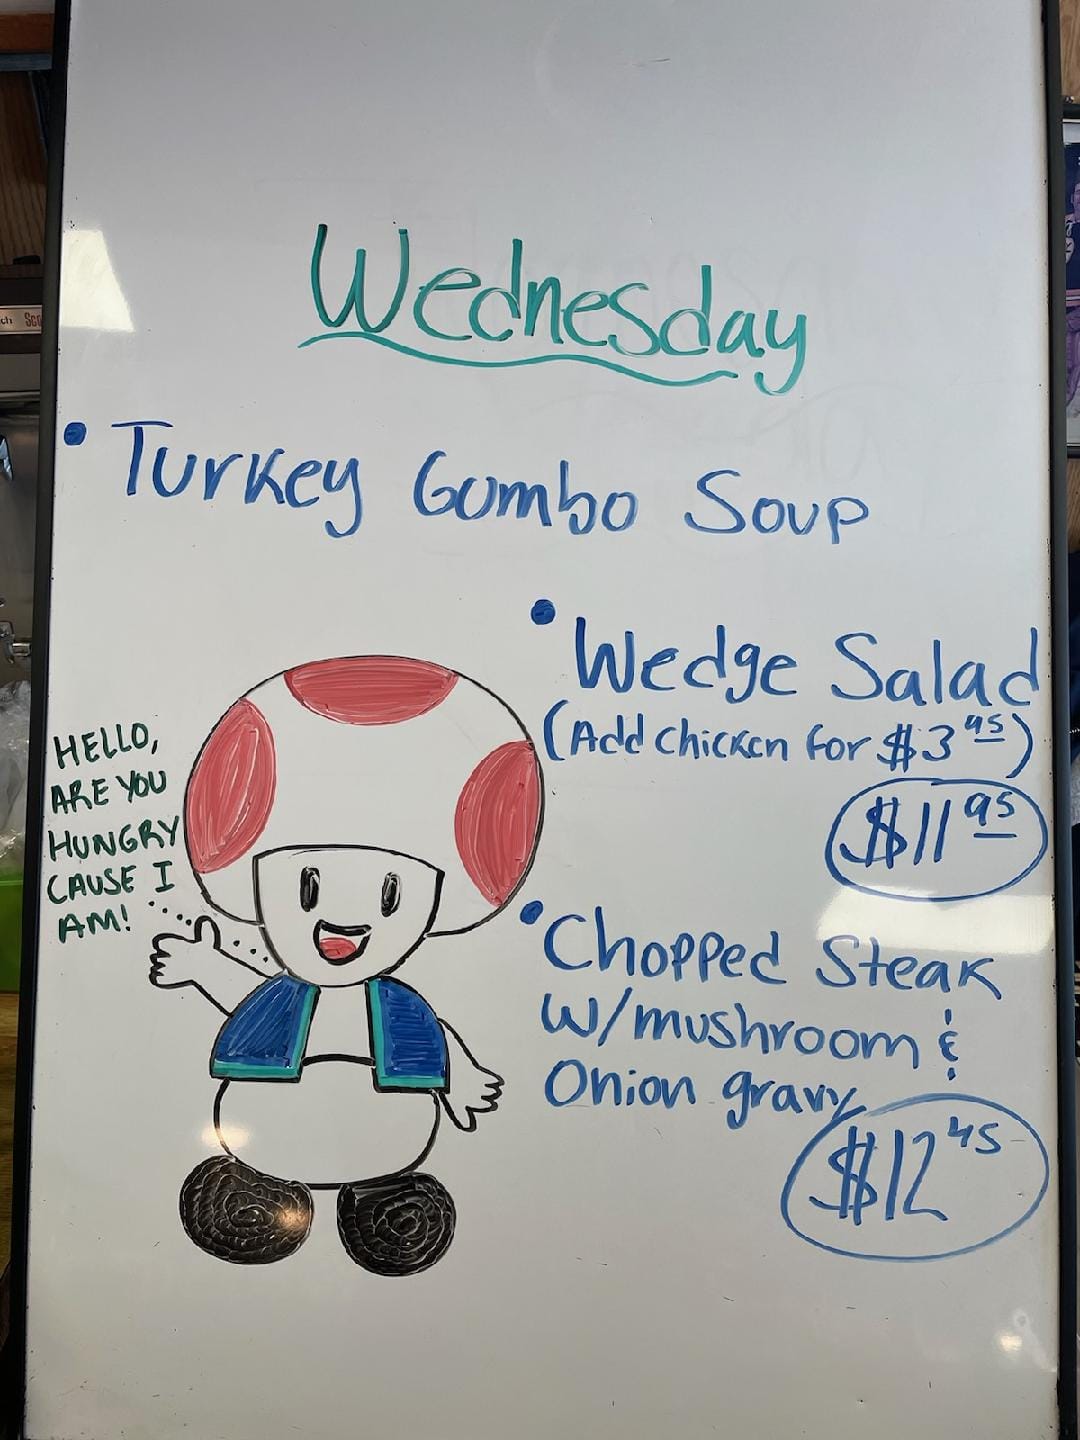 Wednesday
• Turkey Gumbo Soup
• Wedge Salad
(Add Chicken for $3.95)
$11.95
HELLO,
ARE YOU
HUNGRY
CAUSE I
AM!
• Chopped Steak
W/mushroom &
Onion gravy
$12.45